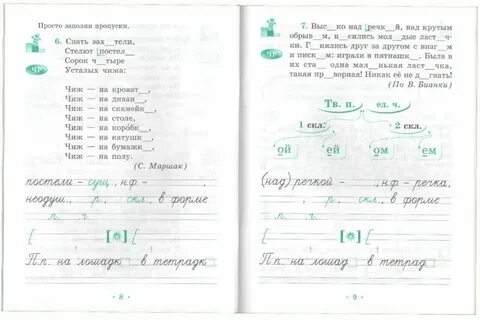 Просто заполни пропуски.
6. Спать зах__тели,
Стелют постел__
Сорок ч__тыре
Усталых чижа:
Чиж — на кроват__,
Чиж — на диван__,
Чиж — на скамейк__,
Чиж — на столе,
Чиж — на коробк__,
Чиж — на катушк__,
Чиж — на бумажк__,
Чиж — на полу.
(С. Маршак)
постели – сущ., н.ф. –
неодуш., р., скл., в форме
п. ч.
[ [*] [
П.п. на лошадк в тетрадк
- 8 -
7. Выс__ко над речк__й, над крутым
обрыв__м, н__сились мол__дые ласт__ч-
ки. Г__нялись друг за другом с визг__м
и писк__м: играли в пятнашк__. Была в
их ста__ одна мал__нькая ласт__чка,
такая пр__ворная! Никак её не д__гнать!
(По В. Бианки)
Тв. п. ед. ч.
1 скл. 2 скл.
ой ей ом ем
(над) речкой – , н.ф. – речка,
, р., скл., в форме
п. ч.
[ [*] [
П.п. на лошадк в тетрадк
- 9 -